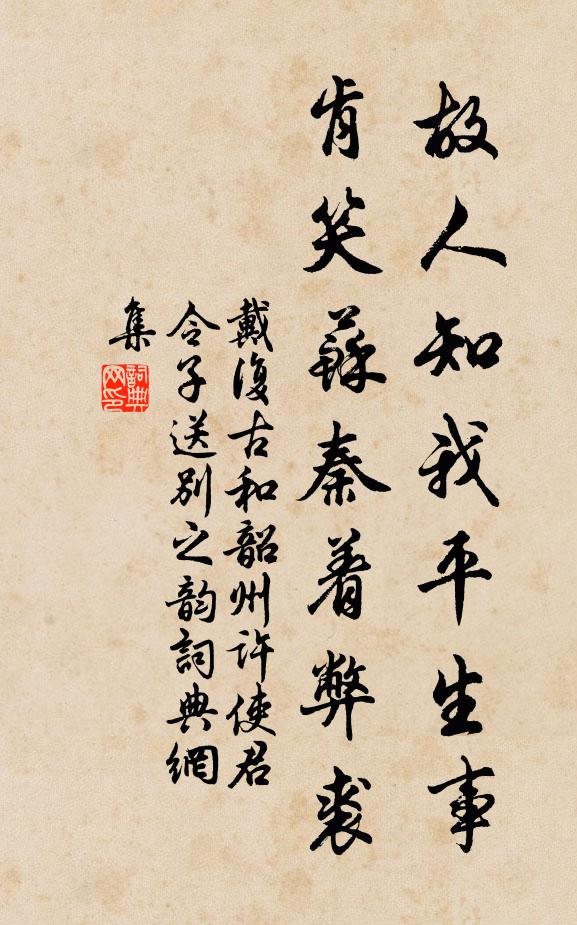 故人知我平生事
肯笑蘇秦着弊裘
戴復古和韶州許使君
令子送別之韵詞典網
集
詞典
网印